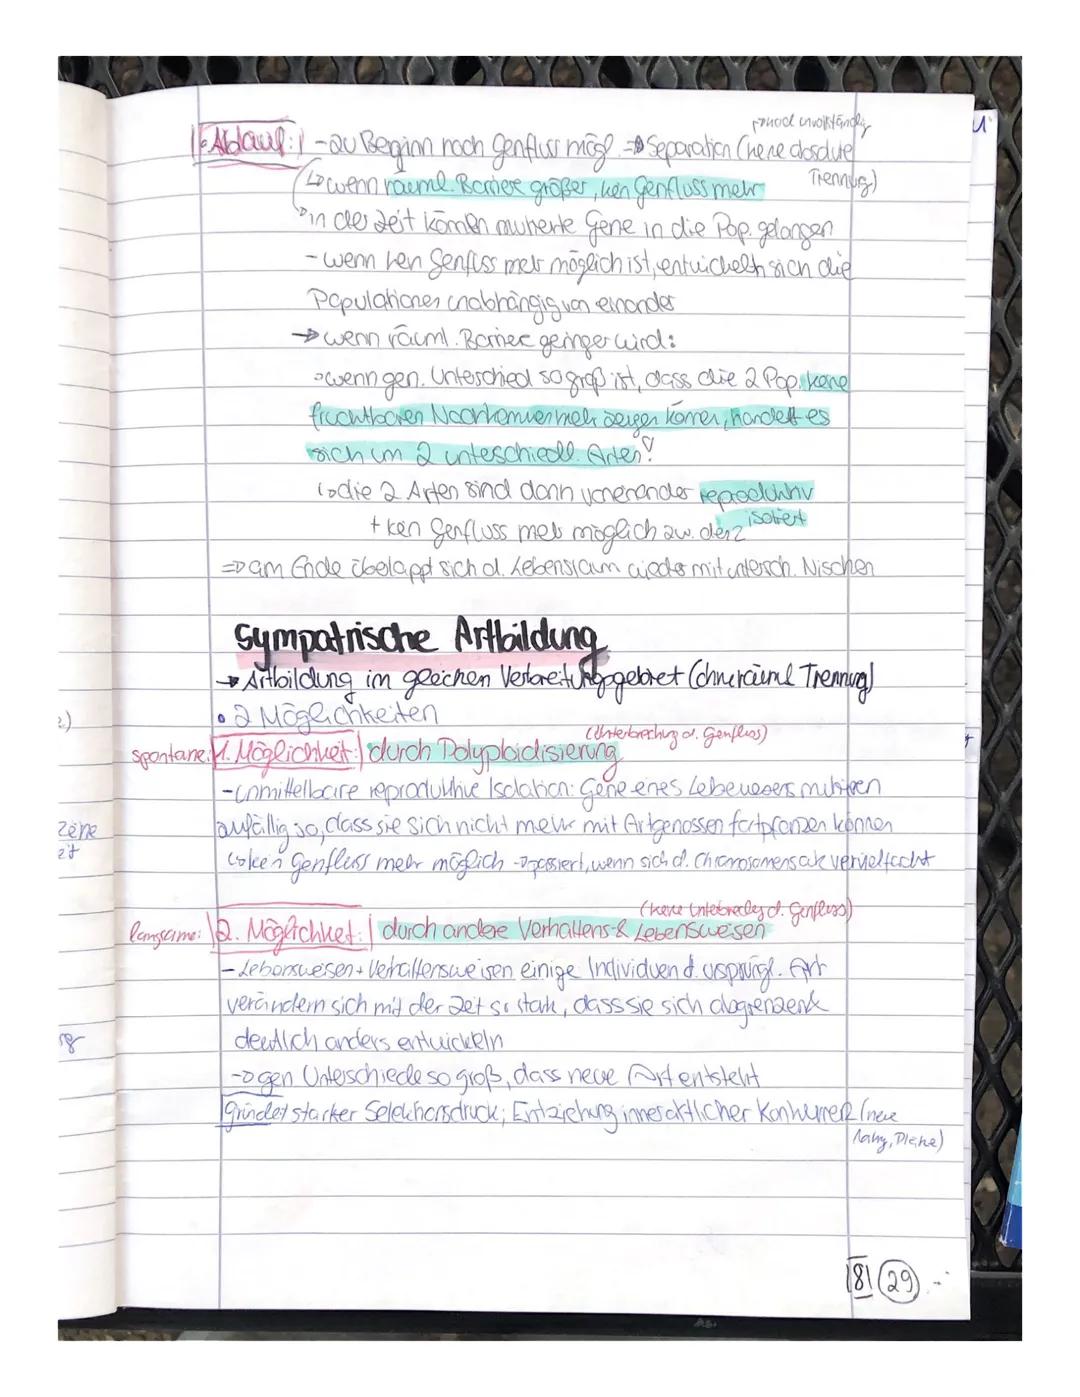 →noch unvollständig
• Ablauf: - zu Beginn noch Genfluss mögl. => Separation (keine absolute
Trennung)
↳ wenn räuml. Barriere größer, kein Genfluss mehr
in der Zeit können mutierte Gene in die Pop. gelangen
- wenn kein Genfluss mehr möglich ist, entwickeln sich die
Populationen unabhängig von einander
→ wenn räuml. Barriere geringer wird:
wenn gen. Unterschied so groß ist, dass die 2 Pop. keine
fruchtbaren Nachkommen mehr zeugen können, handelt es
sich um 2 unterschiedl. Arten!
↳ die 2 Arten sind dann voneinander reproduktiv
isoliert
+ kein Genfluss mehr möglich zw. den 2
=> am Ende überlappt sich d. Lebensraum wieder mit untersch. Nischen
Sympatrische Artbildung
→ Artbildung im gleichen Verbreitungsgebiet (ohne räuml Trennung)
• 2 Möglichkeiten
(Unterbrechung d. Genfluss)
spontane: 1. Möglichkeit: durch Polyploidisierung
- unmittelbare reproduktive Isolation: Gene eines Lebewesens mutieren
zufällig so, dass sie sich nicht mehr mit Artgenossen fortpflanzen können
↳ kein Genfluss mehr möglich → passiert, wenn sich d. Chromosomensatz vervielfacht
(keine Unterbrechung d. Genfluss)
langsame: 2. Möglichkeit: durch andere Verhaltens- & Lebensweisen
- Lebensweisen + Verhaltensweisen einige Individuen d. ursprüngl. Art
verändern sich mit der Zeit so stark, dass sie sich abgrenzen &
deutlich anders entwickeln
→ gen Unterschiede so groß, dass neue Art entsteht
Gründe: starker Selektionsdruck; Entziehung innerartlicher Konkurrenz (neue
Nahrg, Pläne)
zene
eit
rg
181 29